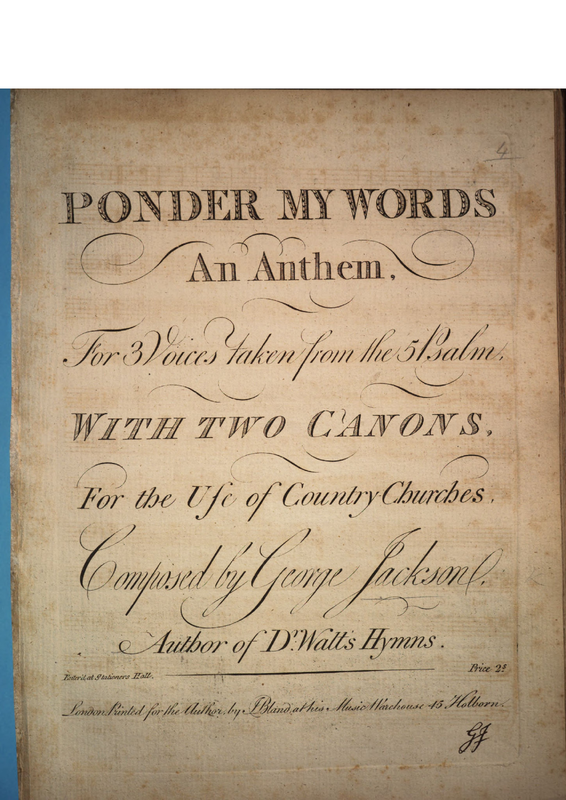 4
PONDER MY WORDS
An Anthem.
For 3 Voices taken from the 5 Psalm.
WITH TWO CANONS.
For the Uſe of Country Churches.
Composed by George Jackson.
Author of Dr. Watts Hymns.
Enter'd at Stationers Hall.
Price 2s
London Printed for the Author, by J. Bland, at his Music Warehouse 45, Holborn.
GJ